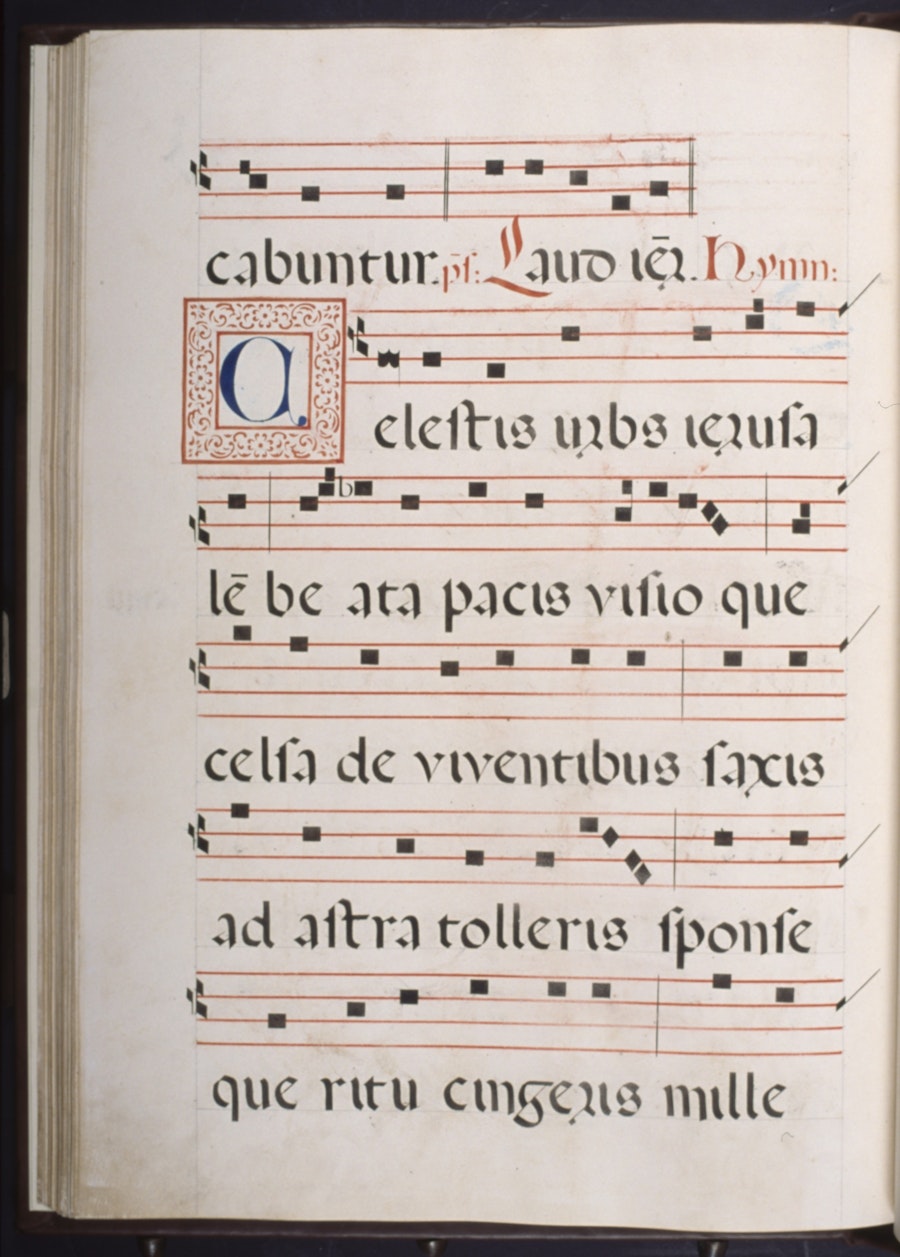 cabuntur. ps̄: Laud iēr. Hymn:
Caelestis urbs ierusa
lē be ata pacis visio que
celsa de viventibus saxis
ad astra tolleris sponse
que ritu cingeris mille